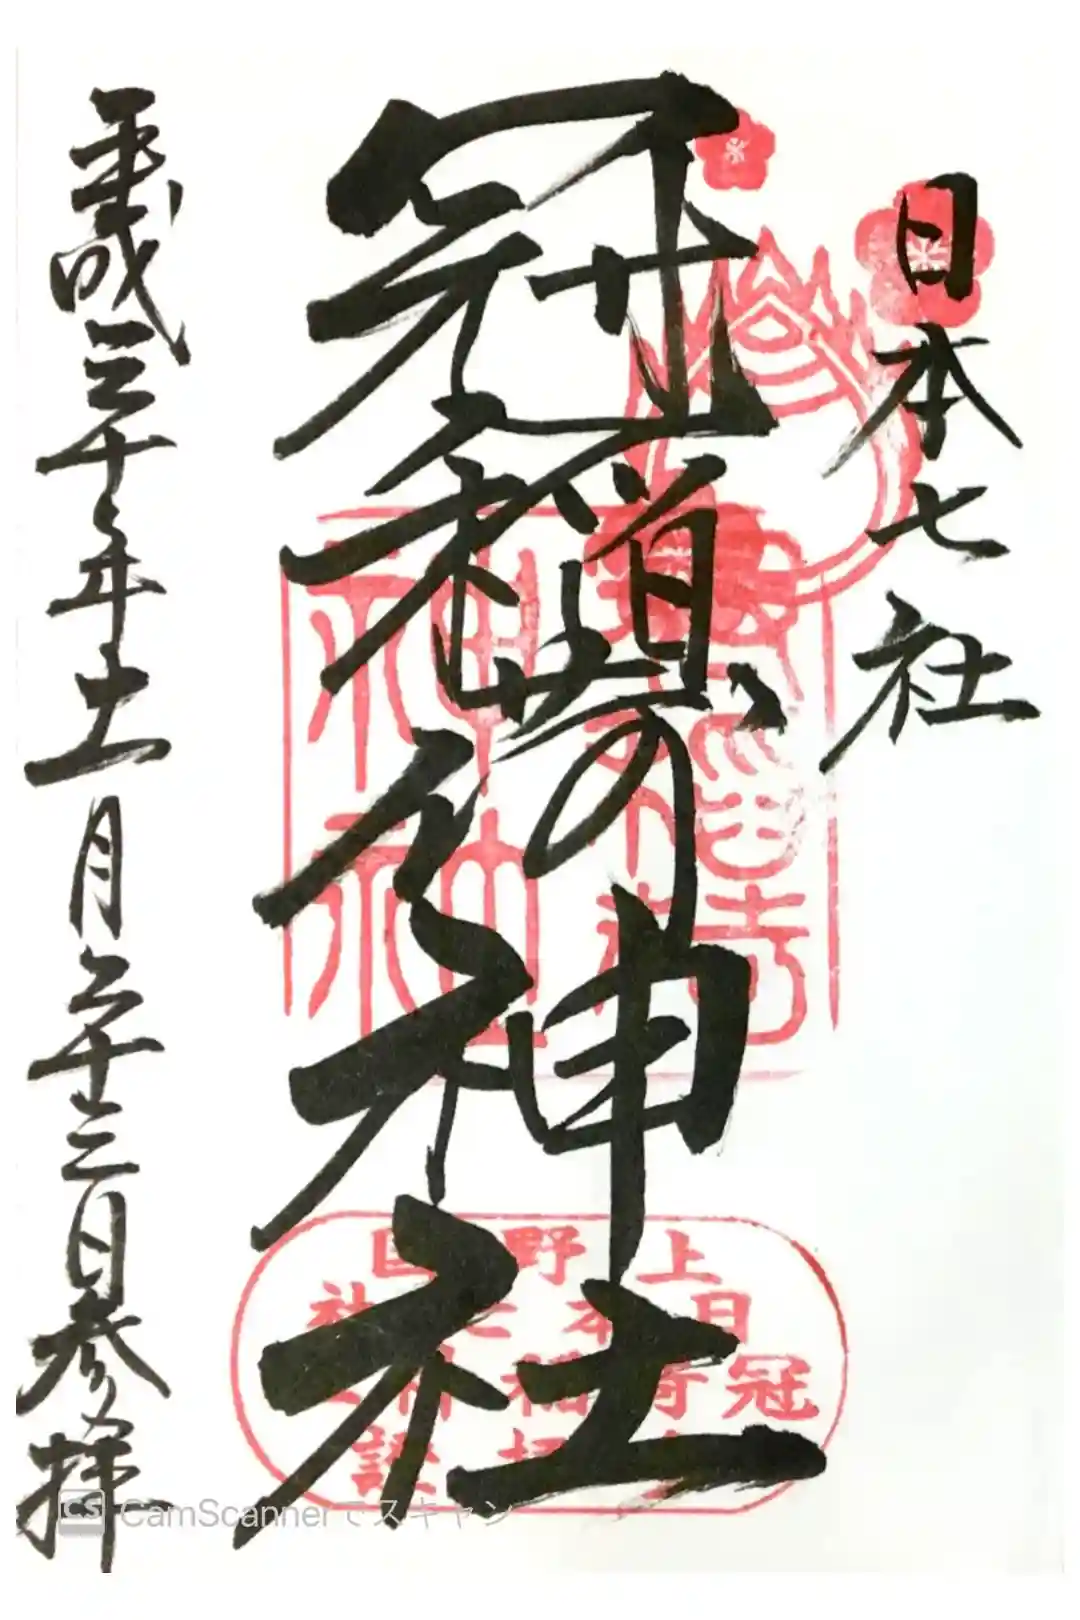 日本七社
冠稲荷神社
平成三十年十一月二十三日参拝
上野国
日本七社
CS CamScannerでスキャン